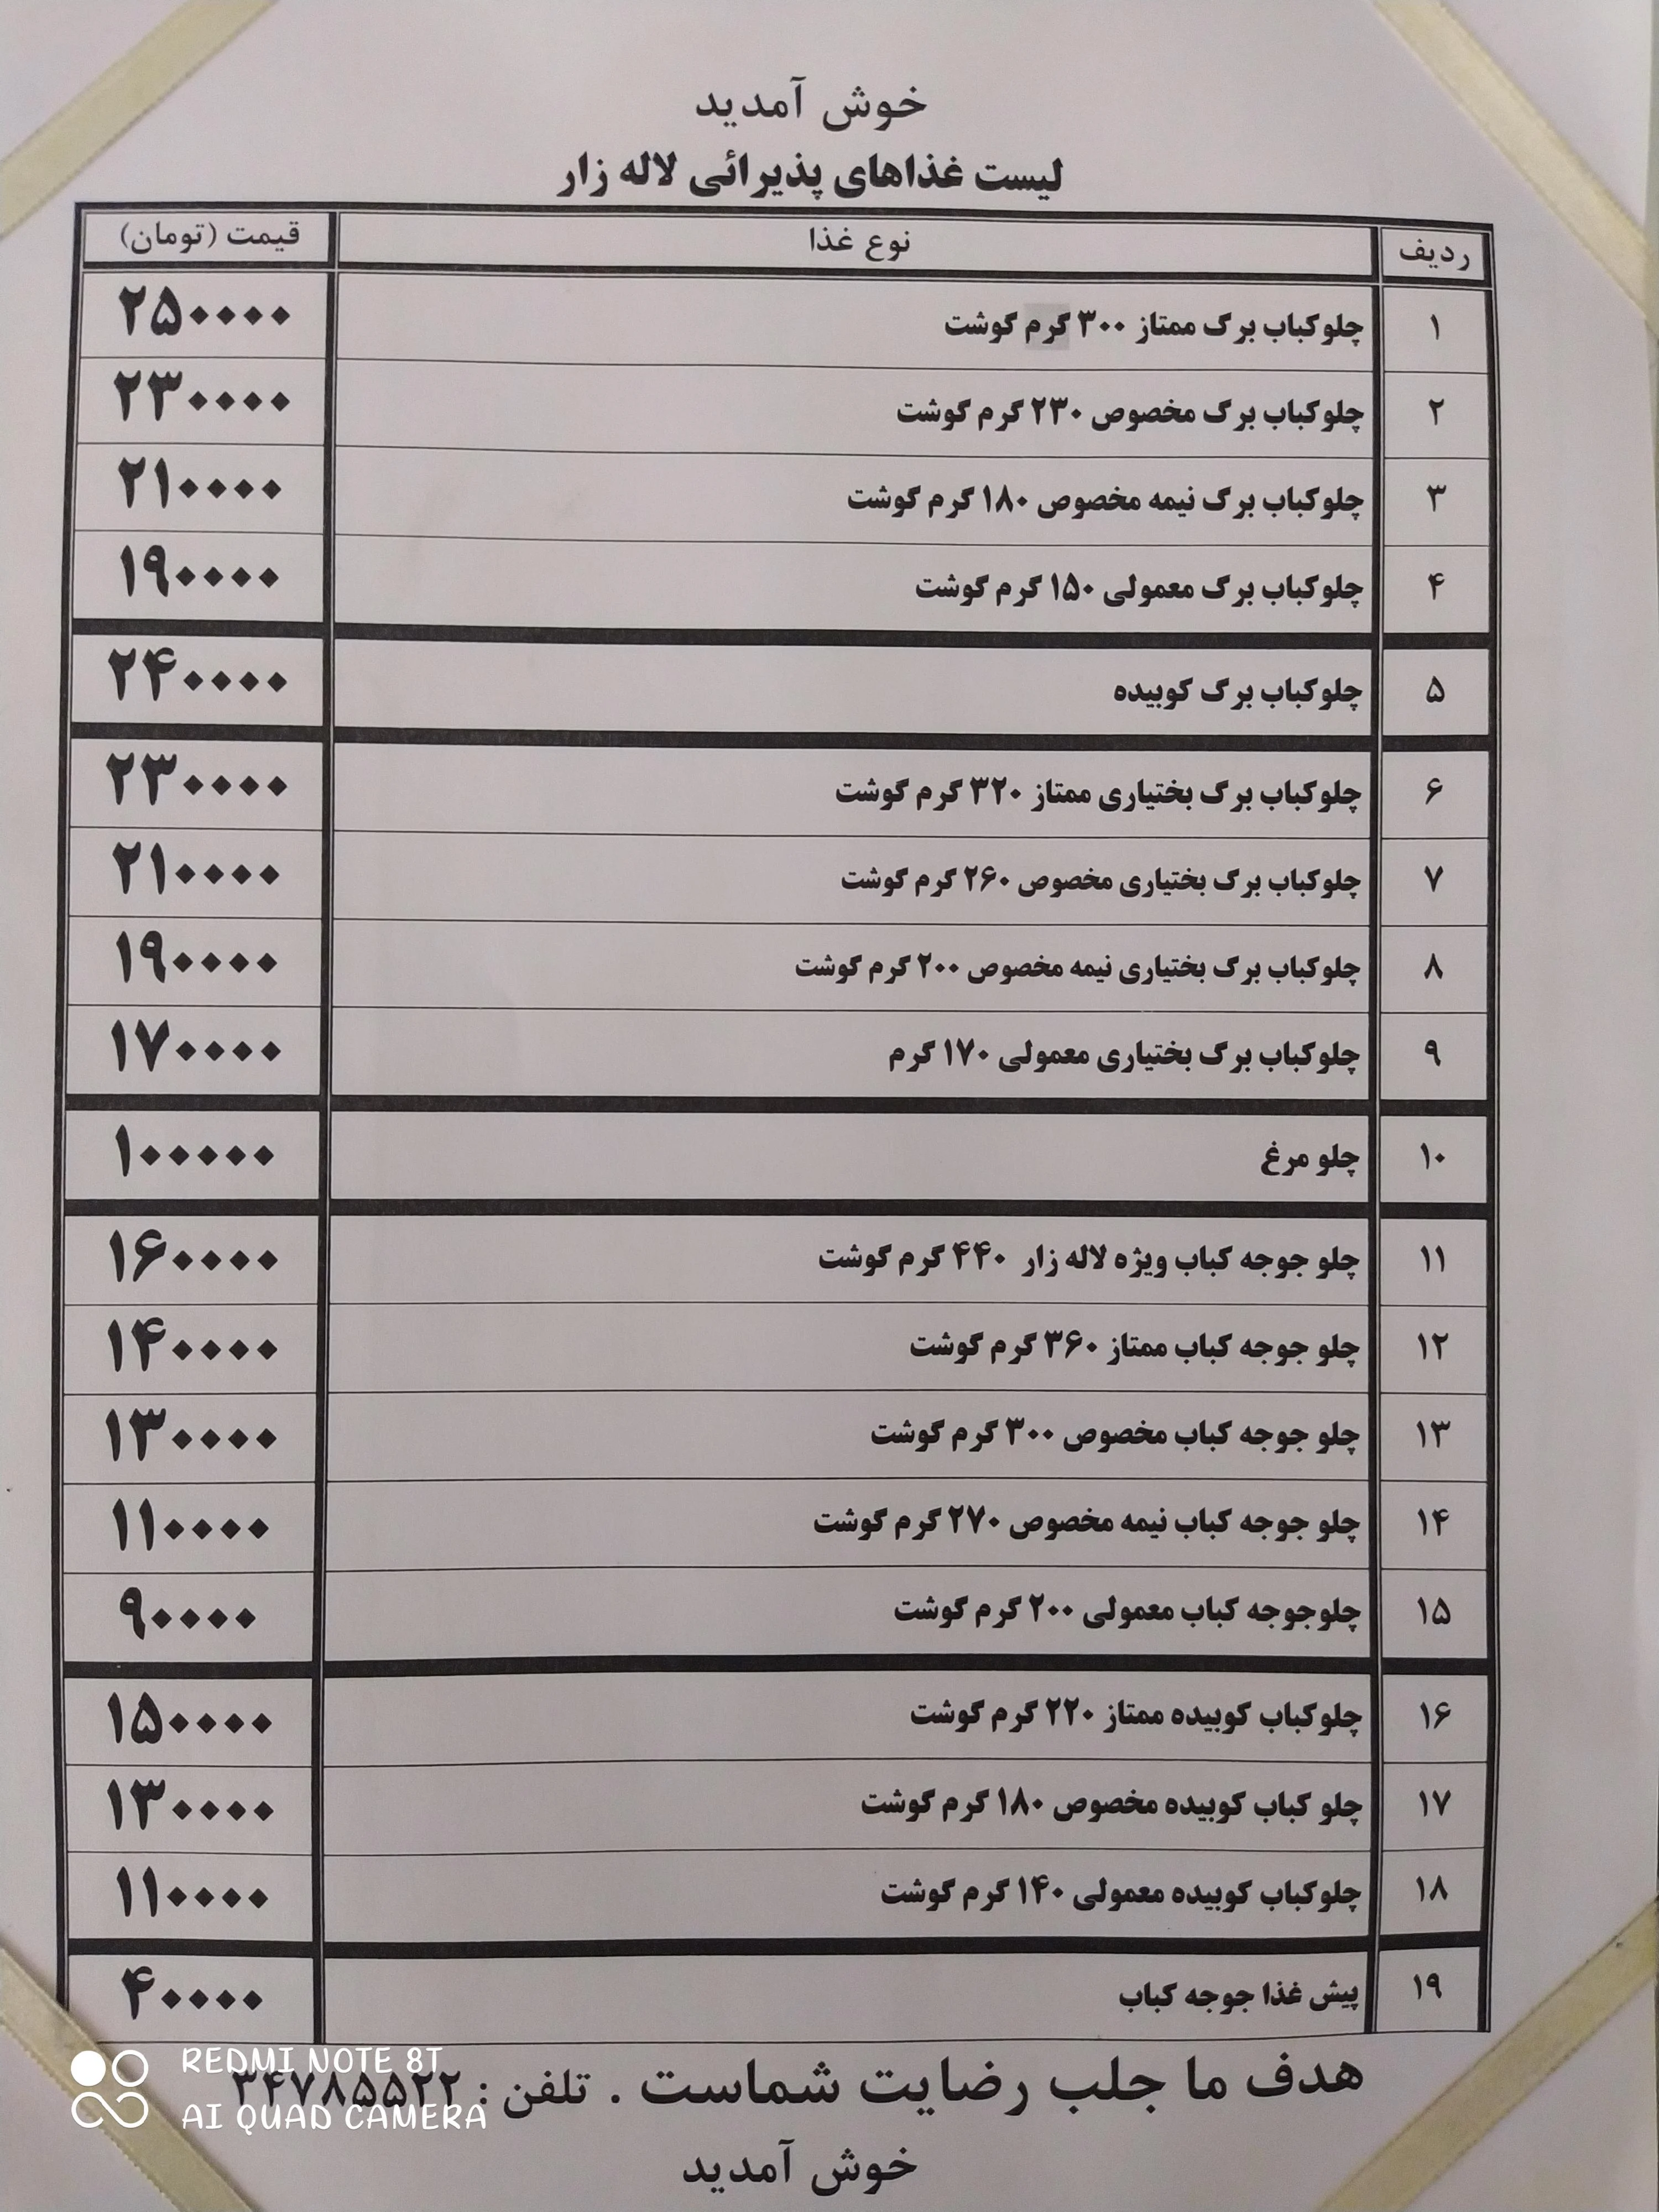 خوش آمدید
لیست غذاهای پذیرائی لاله زار
ردیف نوع غذا قیمت (تومان)
۱ چلوکباب برگ ممتاز ۳۰۰ گرم گوشت ۲۵۰۰۰۰
۲ چلوکباب برگ مخصوص ۲۳۰ گرم گوشت ۲۳۰۰۰۰
۳ چلوکباب برگ نیمه مخصوص ۱۸۰ گرم گوشت ۲۱۰۰۰۰
۴ چلوکباب برگ معمولی ۱۵۰ گرم گوشت ۱۹۰۰۰۰
۵ چلوکباب برگ کوبیده ۲۴۰۰۰۰
۶ چلوکباب برگ بختیاری ممتاز ۳۲۰ گرم گوشت ۲۳۰۰۰۰
۷ چلوکباب برگ بختیاری مخصوص ۲۶۰ گرم گوشت ۲۱۰۰۰۰
۸ چلوکباب برگ بختیاری نیمه مخصوص ۲۰۰ گرم گوشت ۱۹۰۰۰۰
۹ چلوکباب برگ بختیاری معمولی ۱۷۰ گرم ۱۷۰۰۰۰
۱۰ چلو مرغ ۱۰۰۰۰۰
۱۱ چلو جوجه کباب ویژه لاله زار ۴۴۰ گرم گوشت ۱۶۰۰۰۰
۱۲ چلو جوجه کباب ممتاز ۳۶۰ گرم گوشت ۱۴۰۰۰۰
۱۳ چلو جوجه کباب مخصوص ۳۰۰ گرم گوشت ۱۳۰۰۰۰
۱۴ چلو جوجه کباب نیمه مخصوص ۲۷۰ گرم گوشت ۱۱۰۰۰۰
۱۵ چلوجوجه کباب معمولی ۲۰۰ گرم گوشت ۹۰۰۰۰
۱۶ چلوکباب کوبیده ممتاز ۲۲۰ گرم گوشت ۱۵۰۰۰۰
۱۷ چلو کباب کوبیده مخصوص ۱۸۰ گرم گوشت ۱۳۰۰۰۰
۱۸ چلوکباب کوبیده معمولی ۱۴۰ گرم گوشت ۱۱۰۰۰۰
۱۹ پیش غذا جوجه کباب ۴۰۰۰۰
هدف ما جلب رضایت شماست . تلفن : ۳۴۷۸۵۵۲۲
خوش آمدید
REDMI NOTE 8T
AI QUAD CAMERA